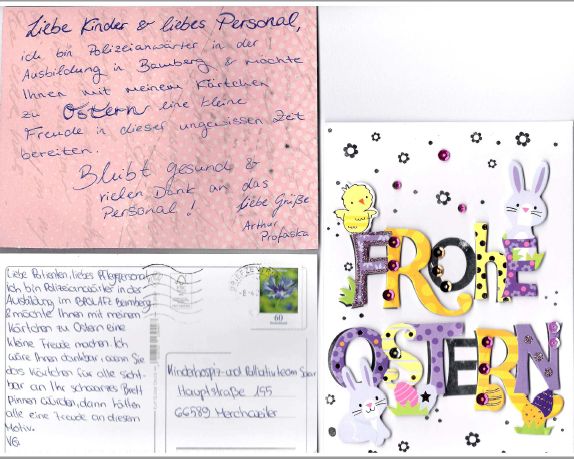 Liebe Kinder & liebes Personal,
ich bin Polizeianwärter in der
Ausbildung in Bamberg & möchte
Ihnen mit meinem Kärtchen
zu Ostern eine kleine
Freude in dieser ungewissen Zeit
bereiten.
Bleibt gesund &
vielen Dank an das
Personal!
Liebe Grüße
Arthur
Liebe Patienten, liebes Pflegepersonal,
Ich bin Polizeianwärter in der
Ausbildung im Bamberg
& möchte Ihnen mit meinem
Kärtchen zu Ostern eine
kleine Freude machen. Ich
wäre Ihnen dankbar, wenn Sie
das Kärtchen für alle sicht-
bar an Ihr schwarzes Brett
pinnen würden, dann hätten
alle eine Freude an diesem
Motiv.
60
Deutschland
Kinderhospiz- und Palliativteam Saar
Hauptstraße 155
66589 Merchweiler
FROHE
OSTERN